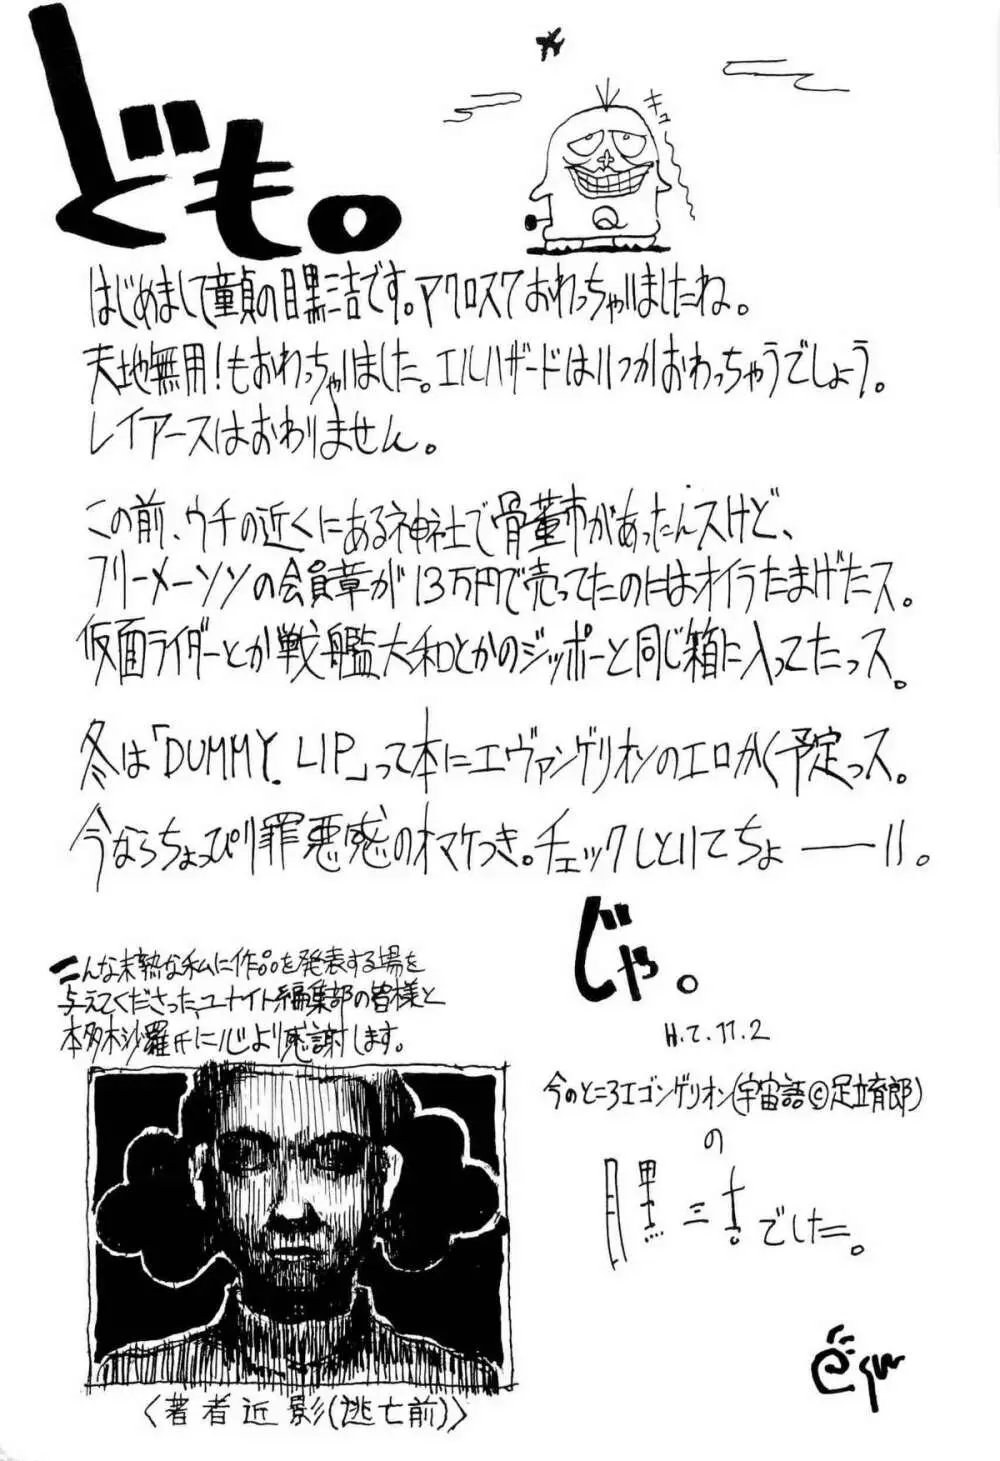 ども。
キュ
Q
はじめまして童貞の目黒三吉です。マクロス7おわっちゃいましたね。
天地無用！もおわっちゃいました。エルハザードはいつかおわっちゃうでしょう。
レイアースはおわりません。
この前、ウチの近くにある神社で骨董市があったんスけど、
フリーメーソンの会員章が13万円で売ってたのにはオイラたまげたス。
仮面ライダーとか戦艦大和とかのジッポーと同じ箱に入ってたっス。
冬は「DUMMY. LIP」って本にエヴァンゲリオンのエロかく予定っス。
今ならちょっぴり罪悪感のオマケつき。チェックしといてちょーーい。
じゃ。
H.7.11.2
こんな未熟な私に作品を発表する場を
与えてくださった、ユナイト編集部の皆様と
本多木沙羅氏に心より感謝します。
今のところエゴンゲリオン(宇宙語©足立育郎)
の
目黒三吉でした。
〈著者近影(逃亡前)〉